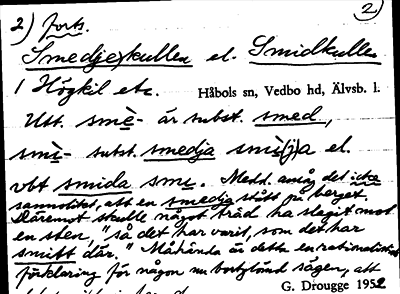 2)
2) forts.
Smedjekullen el. Smidkullen
1 Högkil etc. Håbols sn, Vedbo hd, Älvsb. l.
Utt. smè- är subst. smed,
smì- subst. smedja smì(j)a el.
vbt smida smi. Medd. ansåg det icke
sannolikt, att en smedja stått på berget.
Däremot skulle något träd ha slagit mot
en sten, "så det har varit, som det har
smitt där." Måhända är detta en rationalistisk
förklaring för någon nu bortglömd sägen, att
G. Drougge 1952